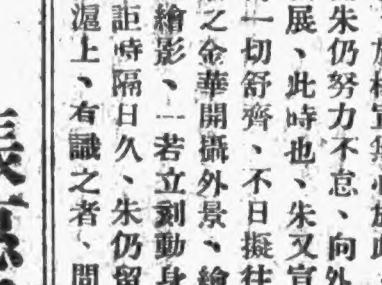 心於此
朱仍努力不怠、向外
展、此時也、朱又宣
一切舒齊、不日擬往
之金華開攝外景、繪
繪影、一若立刻動身
詎時隔日久、朱仍留
滬上、有識之者、